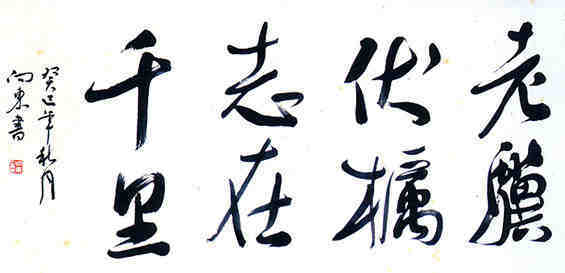 老驥
伏櫔
志在
千里
癸巳年秋月
向東書